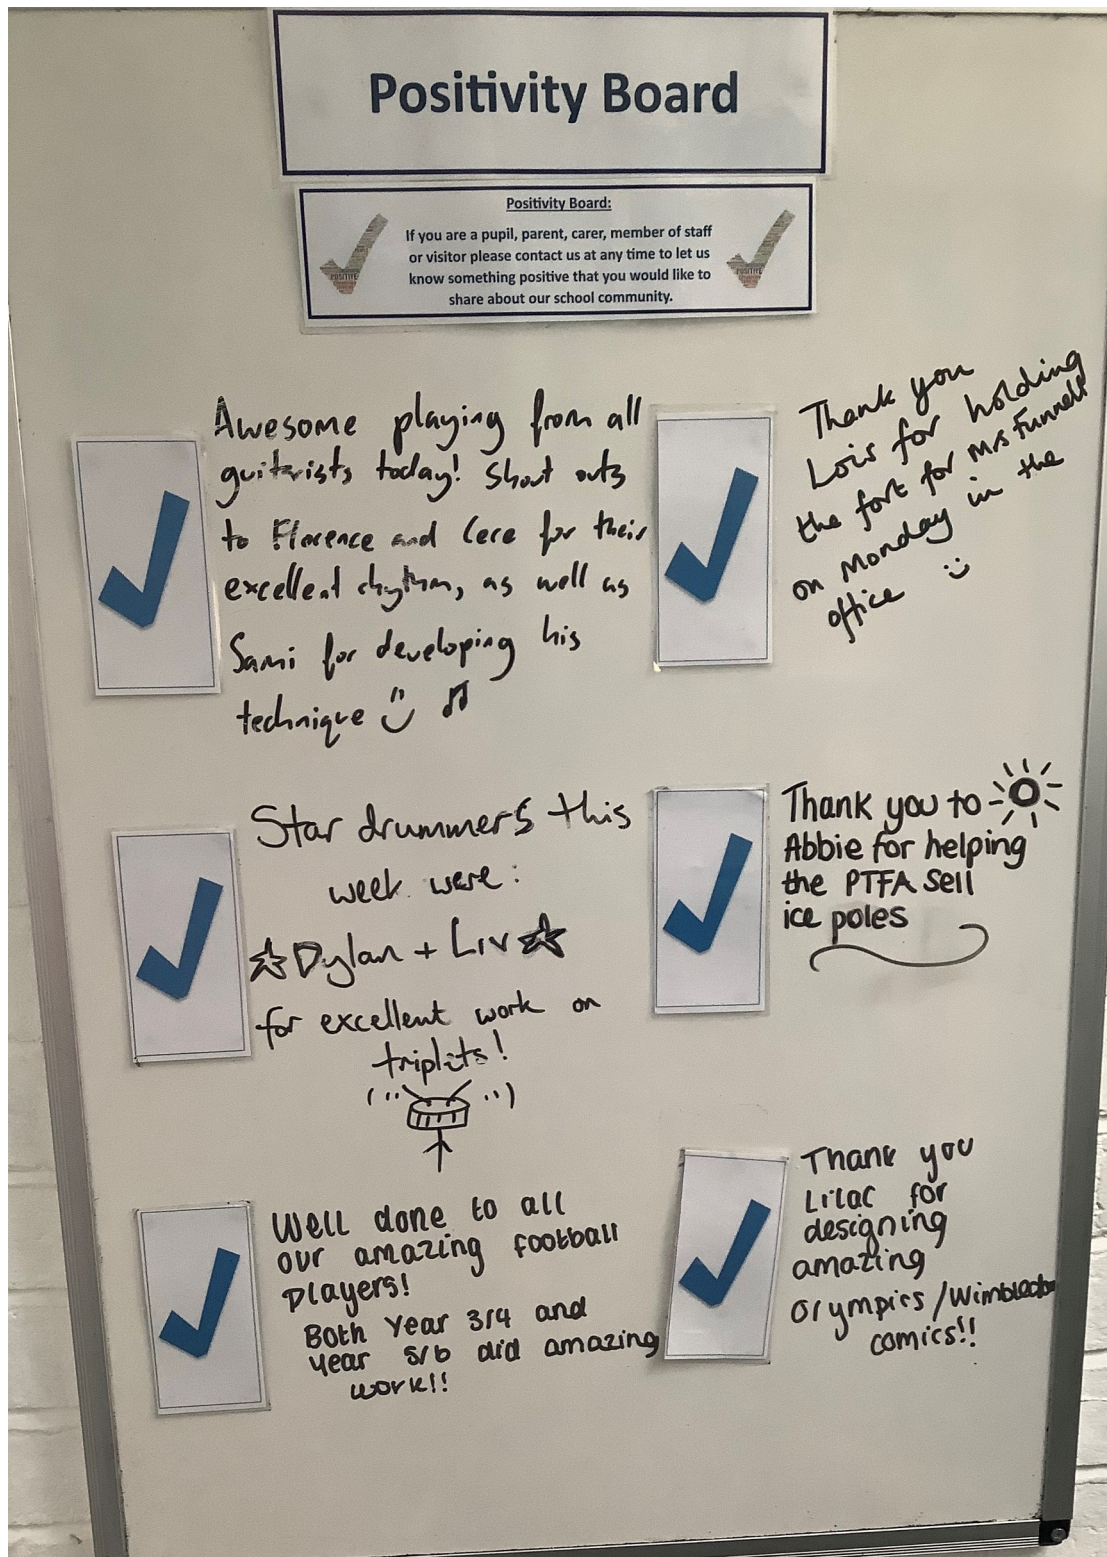 Positivity Board
Positivity Board:
If you are a pupil, parent, carer, member of staff
or visitor please contact us at any time to let us
know something positive that you would like to
share about our school community.
POSITIVE
POSITIVE
Awesome playing from all
guitarists today! Shout outs
to Florence and Cece for their
excellent rhythm, as well as
Sami for developing his
technique
Thank you
Lois for holding
the fort for Mrs Funnell
on Monday in the
office
Star drummers this
week were:
Dylan + Liv
for excellent work on
triplets!
Thank you to
Abbie for helping
the PTFA sell
ice poles
Well done to all
our amazing football
players!
Both Year 3/4 and
Year 5/6 did amazing
work!!
Thank you
Lilac for
designing
amazing
Olympics/Wimbledon
comics!!